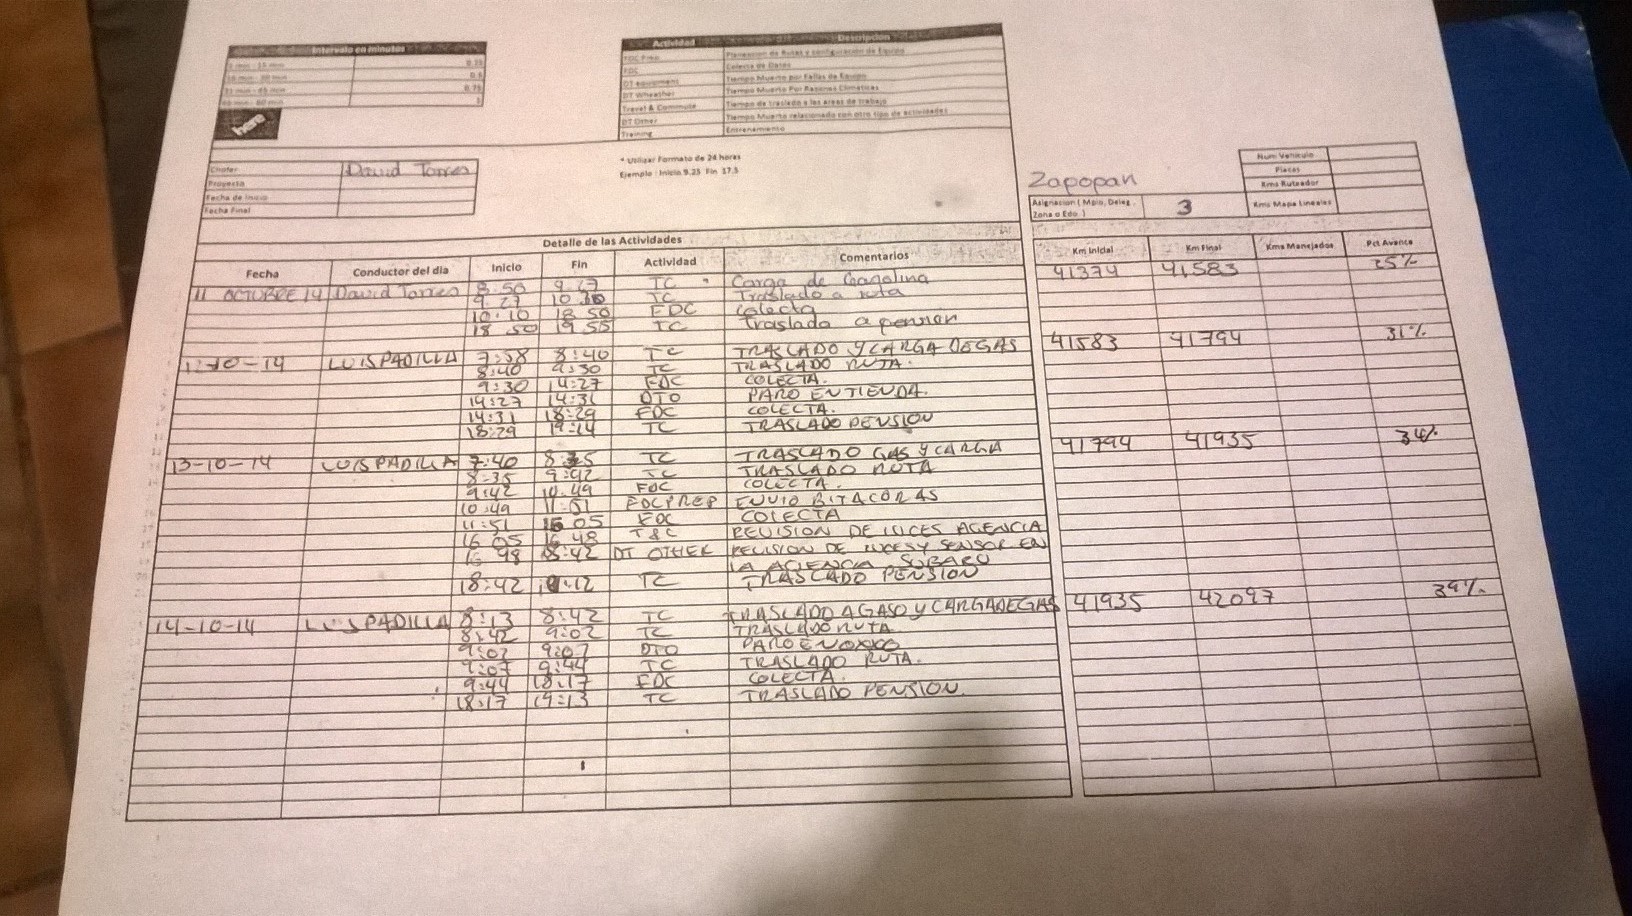 Intervalo en minutos
0.25
0.5
0.75
1
here
Actividad Descripcion
EDC Prep Planeacion de Rutas y configuración de Equipo
EDC Colecta de Datos
DT equipment Tiempo Muerto por Fallas de Equipo
DT Wheather Tiempo Muerto Por Razones Climáticas
Travel & Commute Tiempo de traslado a las áreas de trabajo
DT Other Tiempo Muerto relacionado con otro tipo de actividades
Training Entrenamiento
* Utilizar Formato de 24 horas
Ejemplo : Inicio 9.25 Fin 17.5
Chofer David Torres
Proyecto
Fecha de Inicio
Fecha Final
Zapopan
Asignacion ( Mpio, Deleg, Zona o Edo ) 3
Num Vehiculo
Placas
Kms Ruteador
Kms Mapa Lineales
Detalle de las Actividades
Fecha Conductor del dia Inicio Fin Actividad Comentarios Km Inicial Km Final Kms Manejados Pct Avance
11 OCTUBRE 14 David Torres 8:50 9 27 TC Carga de Gasolina 41374 41583 25%
9 27 TC Traslado a ruta
10:10 18 50 EDC Colecta
18 50 19 55 TC Traslado a pension
12-10-14 LUIS PADILLA 7:58 8:40 TC TRASLADO Y CARGA DE GAS 41583 41794 31%
8:40 9:30 TC TRASLADO RUTA.
9:30 14:27 EDC COLECTA.
14:27 14:31 DTO PARO EN TIENDA.
14:31 18:29 EDC COLECTA.
18:29 19:14 TC TRASLADO PENSION
13-10-14 LUIS PADILLA 7:40 8:35 TC TRASLADO GAS Y CARGA 41794 41935 34%
8:35 9:42 TC TRASLADO RUTA
9:42 10:49 EDC COLECTA.
10:49 11:51 EDC PREP ENVIO BITACORAS
11:51 16 05 EDC COLECTA
16 05 16 48 T&C REVISION DE LUCES AGENCIA
16 48 18:42 DT OTHER REVISION DE LUCES Y SENSOR EN
LA AGENCIA SUBARU
18:42 19:12 TC TRASLADO PENSION
14-10-14 LUIS PADILLA 8:13 8:42 TC TRASLADO A GASO Y CARGA DE GAS 41935 42097 39%
8:42 9:02 TC TRASLADO RUTA
9:02 9:07 DTO PARO EN OXXO
9:07 9:44 TC TRASLADO RUTA.
9:44 18:17 EDC COLECTA.
18:17 19:13 TC TRASLADO PENSION.